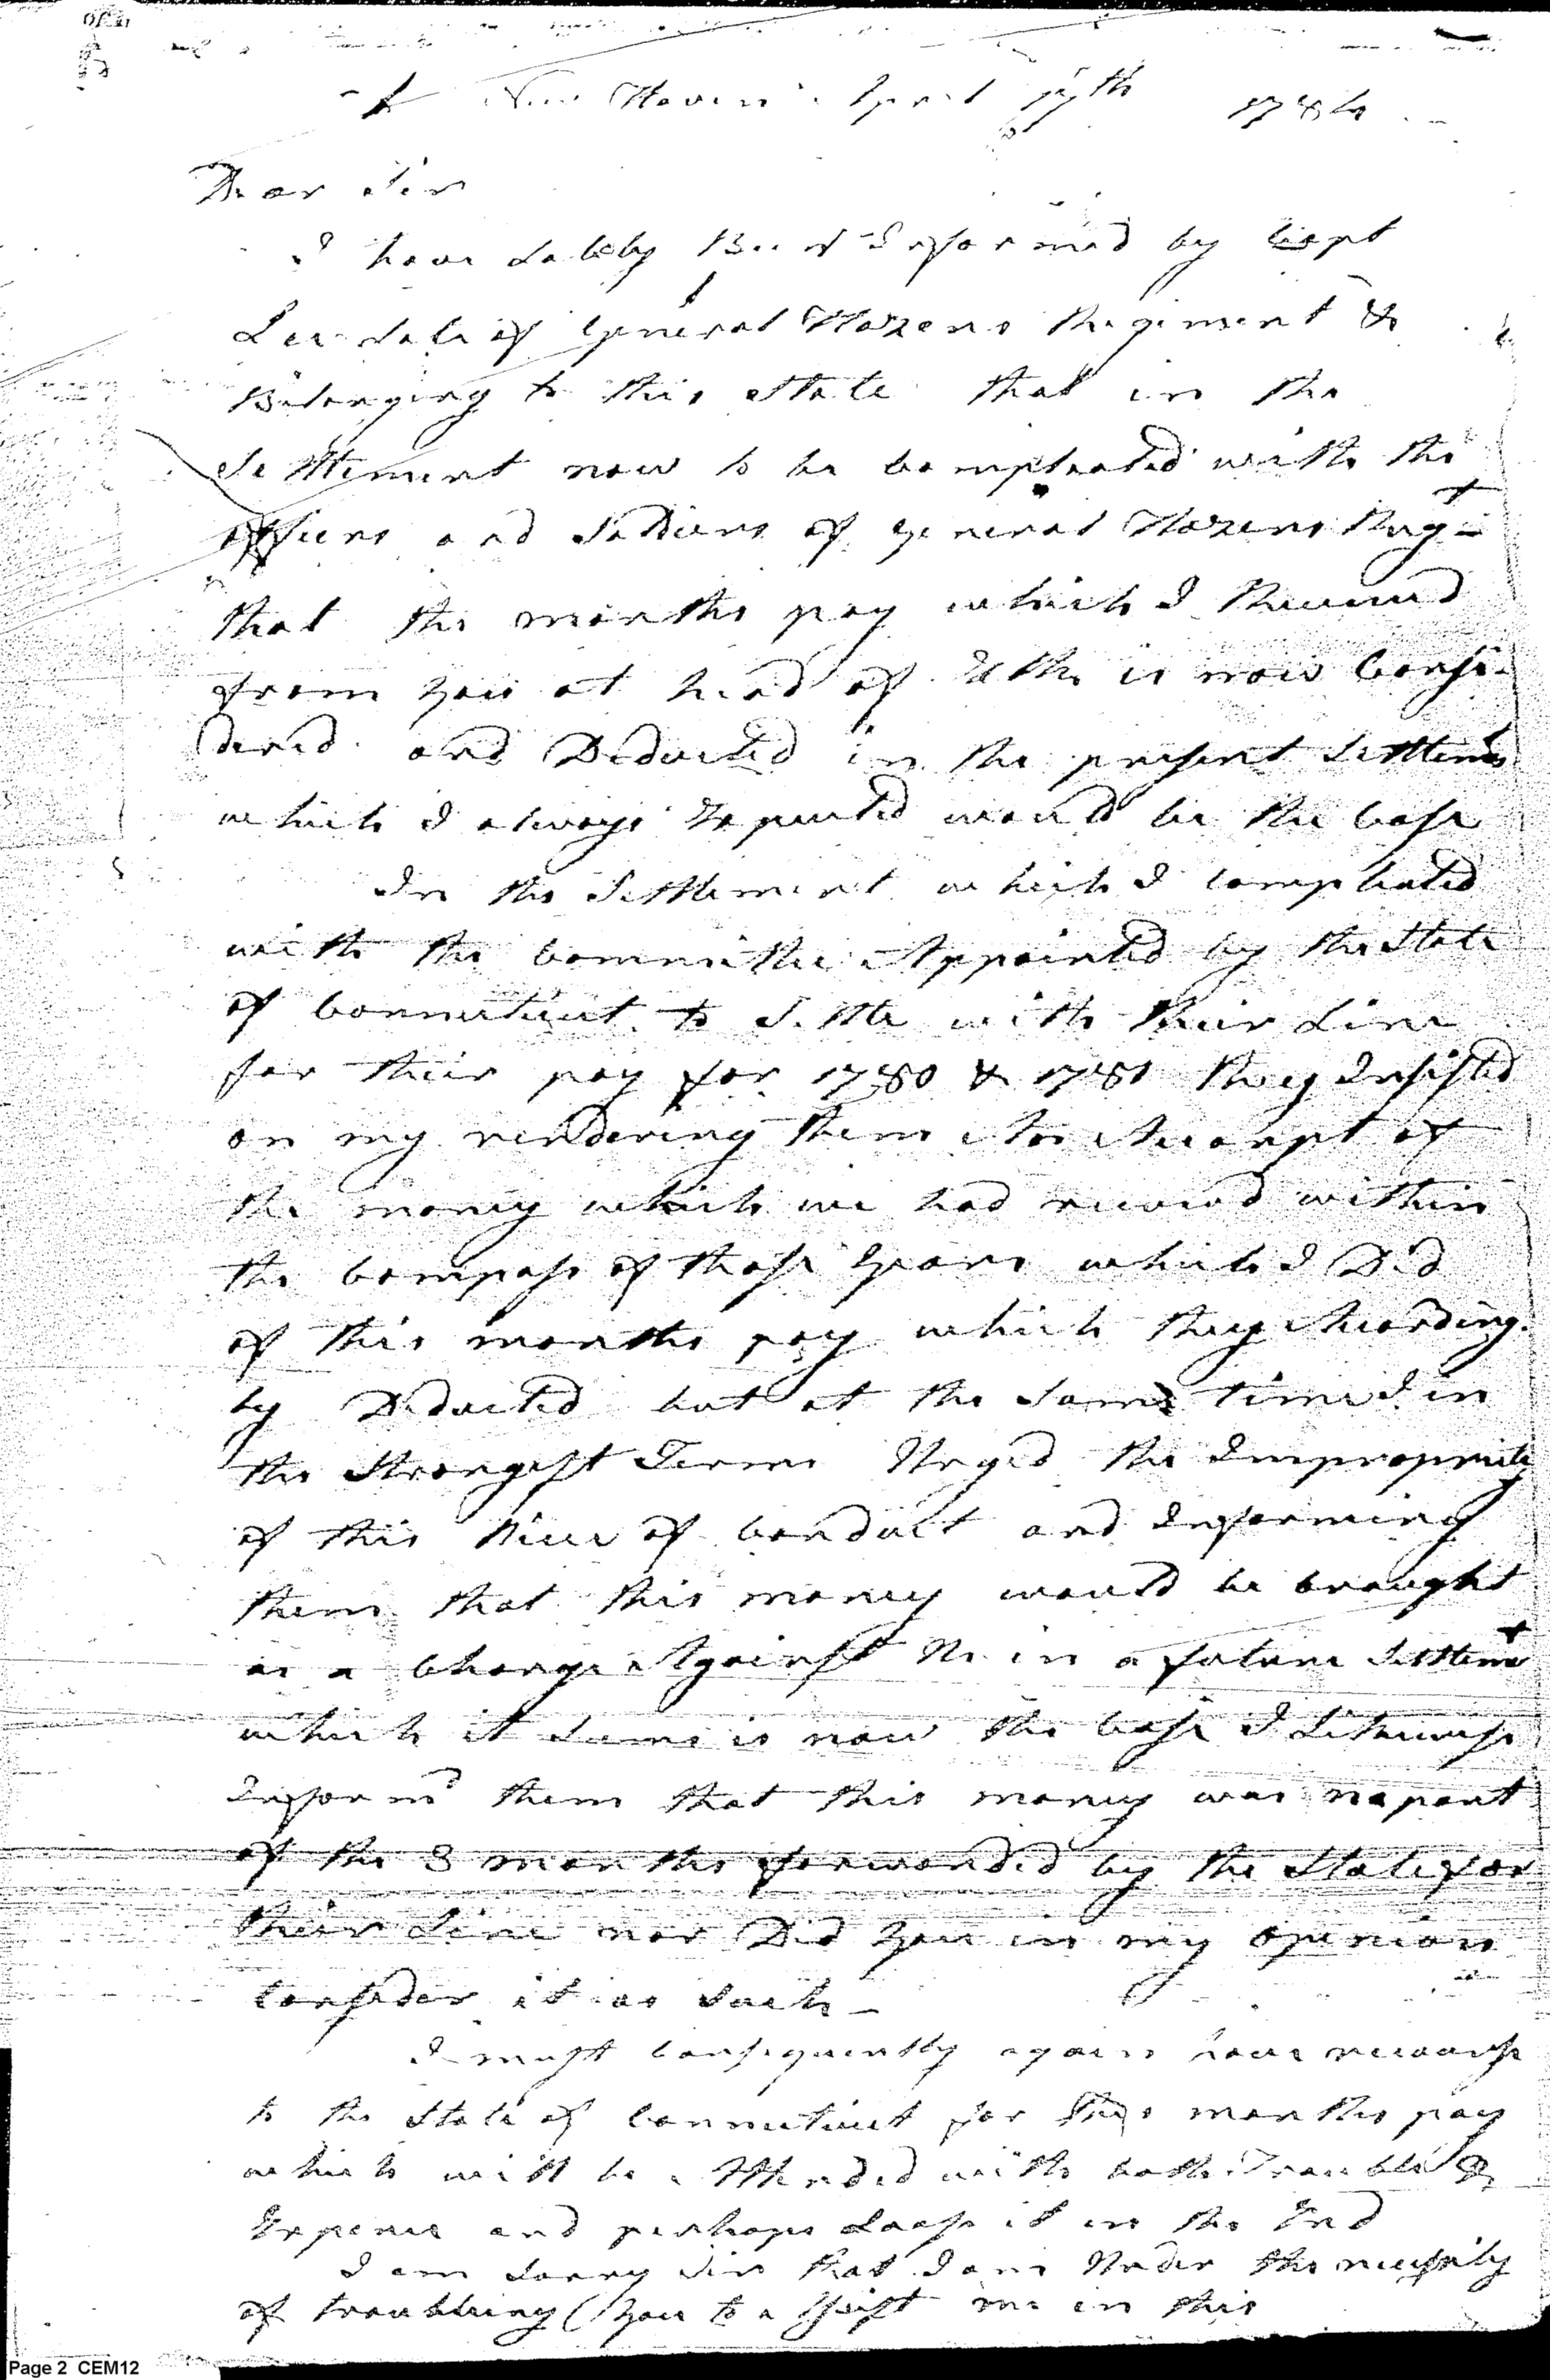 New Haven April 17th 1784
Dear Sir
I have Lately Been Informed by Capt
of General Hazens Regiment &
Belonging to this State that in the
Settlement now to be Compleated with the
officers and Soldiers of general Hazens Regt
that the months pay which I Received
from you at head of Elk is now Consi-
dered and Deducted in the present Settlemt
which I always Expected would be the Case
In the Settlement which I Compleated
with the Committee Appointed by the State
of Connecticut to Settle with their Line
for their pay for 1780 & 1781 they Insisted
on my rendering them An Accompt of
the money which we had receivd within
the Compass of those Years which I Did
of this months pay which they According-
ly Deducted but at the Same time I in
the Strongest Terms Urged the Impropriety
of this Piece of Conduct and Informing
them that this money would be brought
as a Charge Against Us in a future Settlemt
which it Seems is now the Case I Likewise
Informd them that this money was no part
of the 3 months forwarded by the State for
their Line nor Did you in my opinion
Consider it as Such –
I must Consequently again have recourse
to the State of Connecticut for this months pay
which will be Attended with both Trouble &
Expence and perhaps Loose it in the End
I am Sorry Sir that I am Under the necessity
of troubling you to assist me in this
Page 2 CEM12